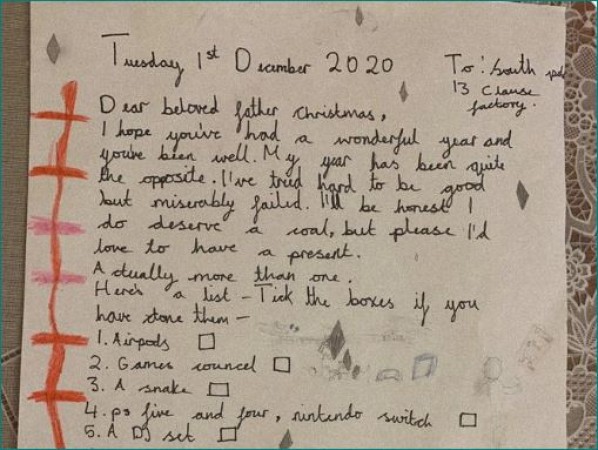 Tuesday 1st December 2020
To: South
13 Clause
factory.
Dear beloved father christmas,
I hope you've had a wonderful year and
you've been well. My year has been quite
the opposite. I've tried hard to be good
but miserably failed. I'll be honest I
do deserve a coal, but please I'd
love to have a present.
Actually more than one.
Here's a list - Tick the boxes if you
have done them -
1. Airpods
2. Games councel
3. A snake
4. ps five and four, nintendo switch
5. A DJ set